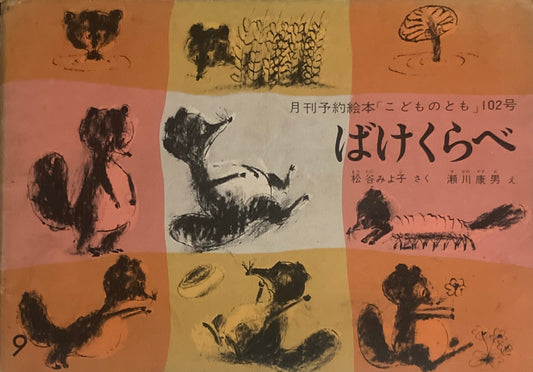 月刊予約絵本「こどものとも」102号
ばけくらべ
松谷みよ子 さく 瀬川康男 え
9